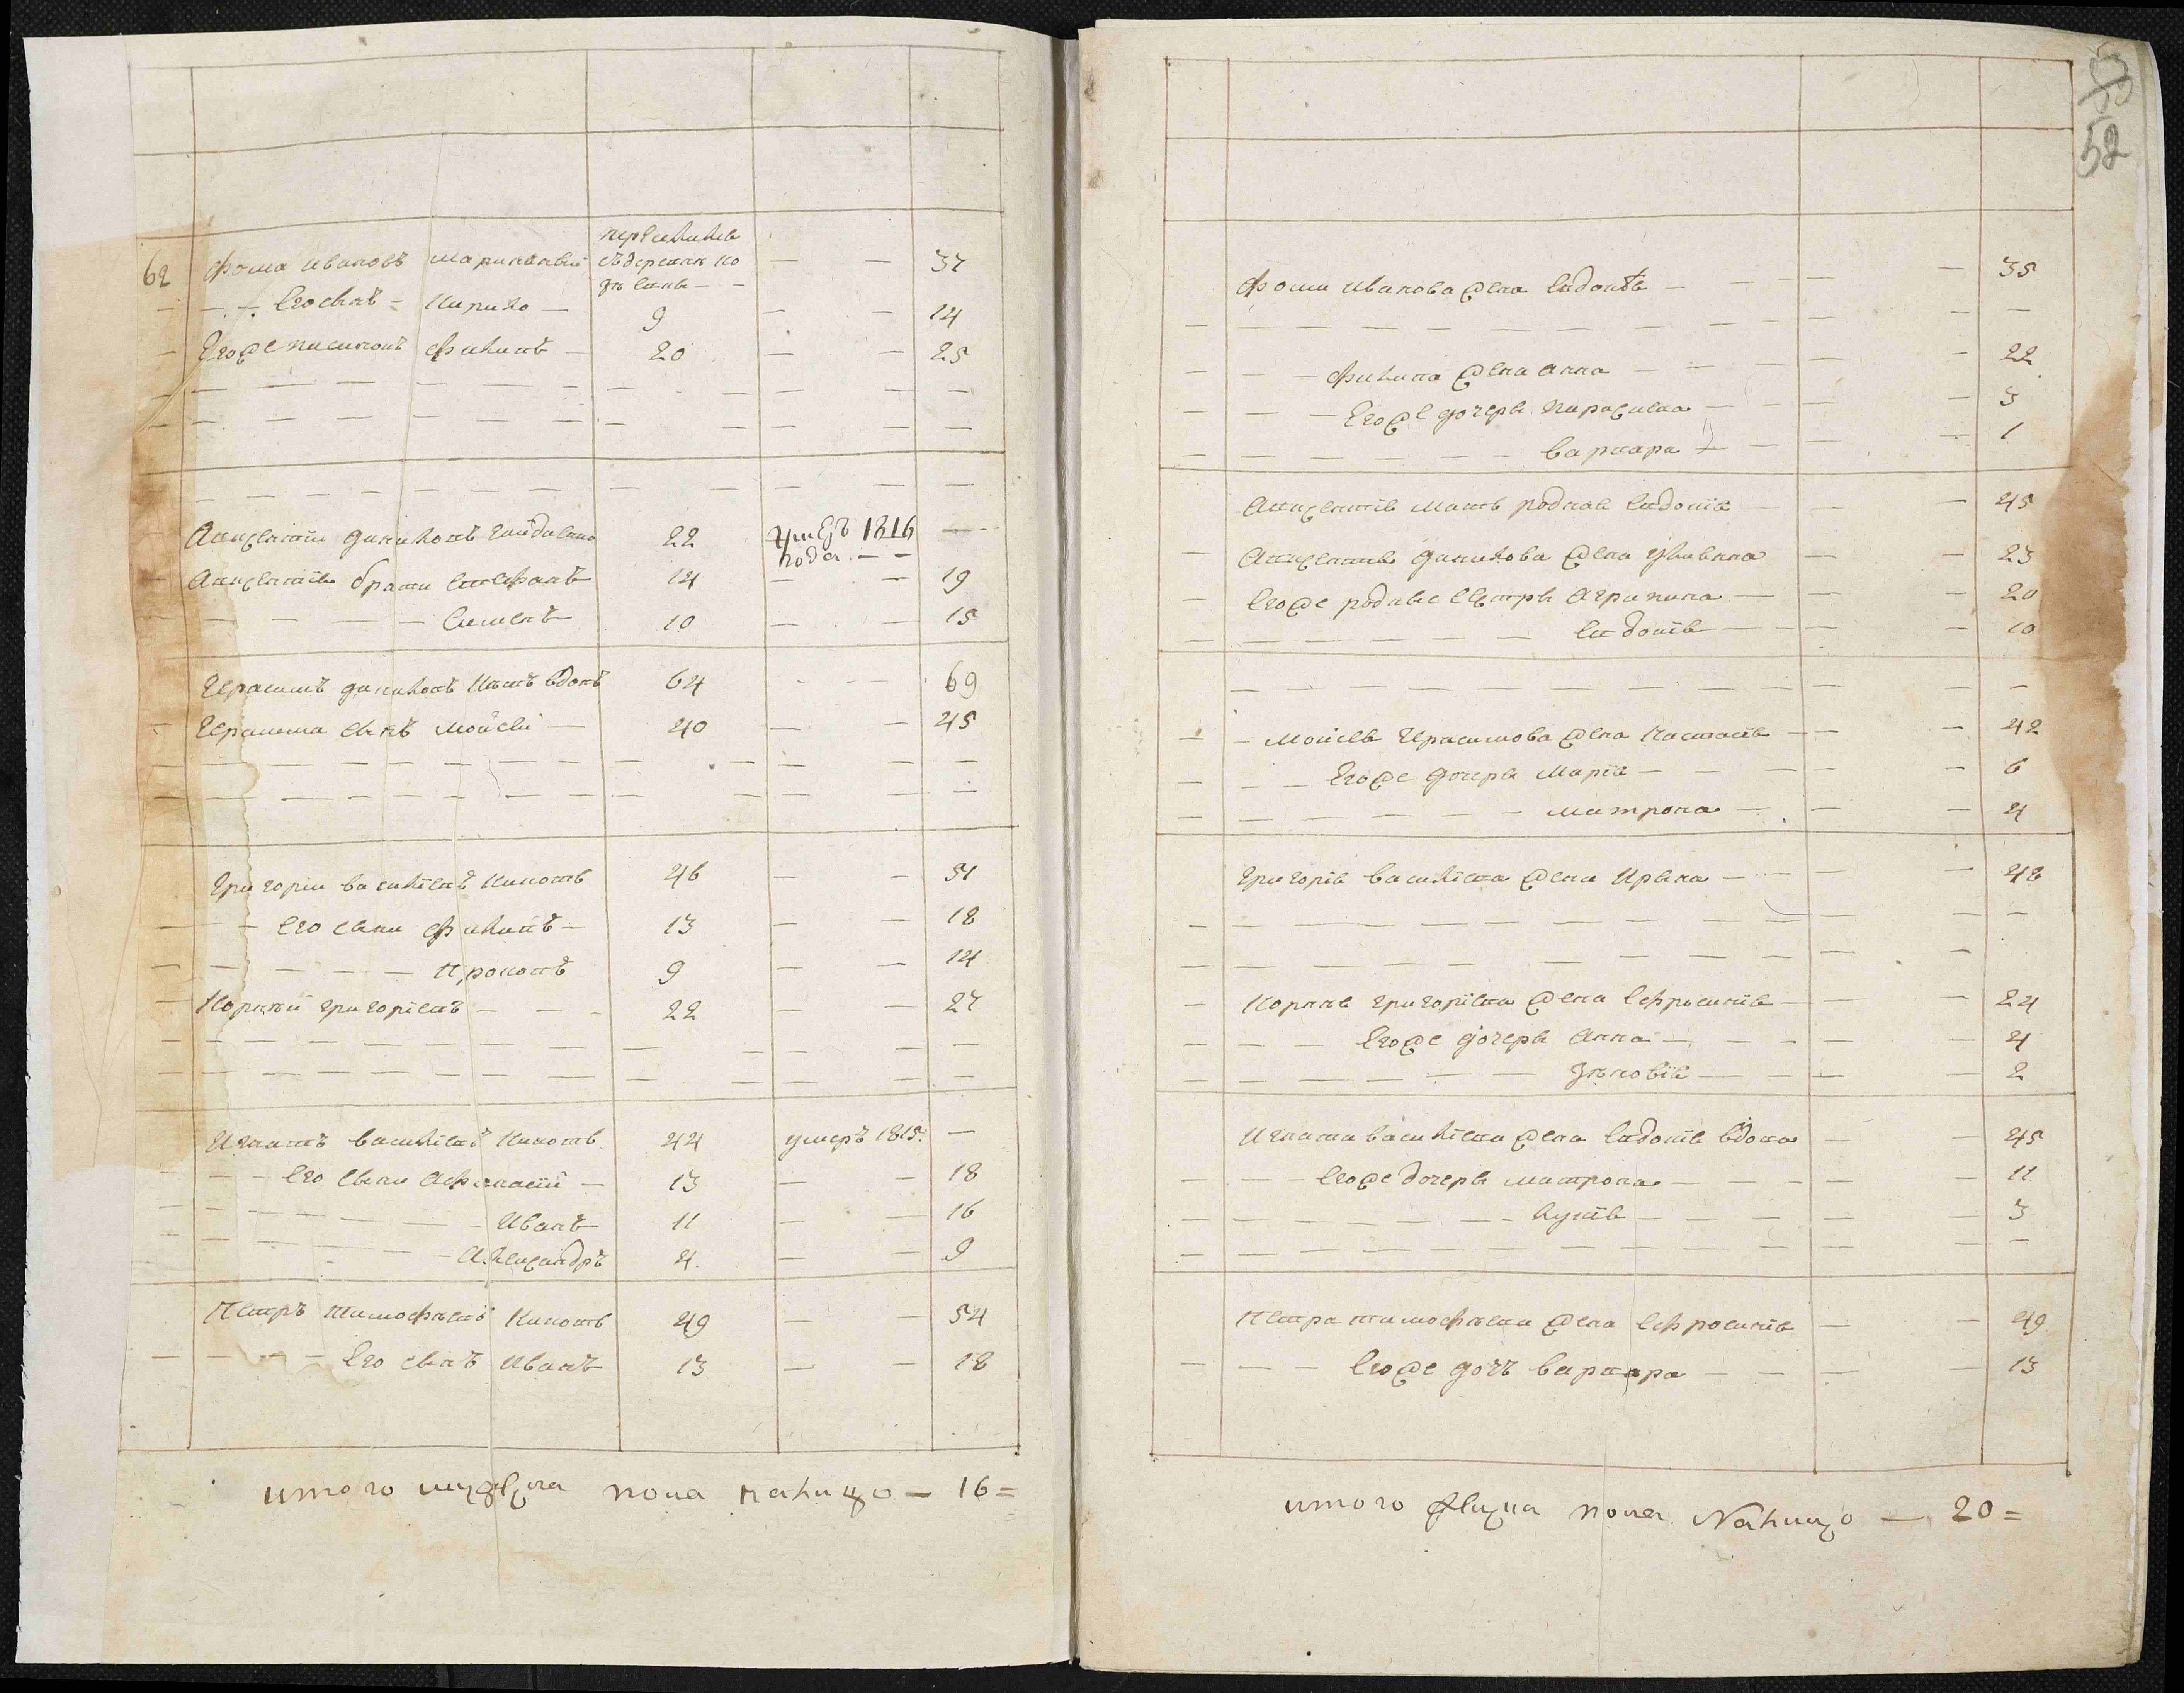 52
62 Фома Ивановъ Маринкевичъ переѣхалъ съ деревни Ко 37
Его сынъ Кирило 9 14
Егоже пасинокъ Филипъ 20 25
Авксентій Даниловъ 22 умеръ 1816 года
Авксентія братья Стефанъ 14 19
Симеонъ 10 15
Герасимъ Даниловъ вдовъ 64 69
Герасима сынъ Мойсей 40 45
Григорій Василіевъ 46 51
Его сыни Филипъ 13 18
Прокопъ 9 14
Корній Григоріевъ 22 27
Игнатъ Василіевъ 44 умеръ 1815
Его сыни Афанасій 13 18
Иванъ 11 16
Александръ 4 9
Петръ Тимофѣевъ 49 54
Его сынъ Иванъ 13 18
итого мужеска пола налицо — 16=
Фоми Иванова жена Евдокія 35
Филипа жена Анна 22
Егоже дочери Параскева 3
Варвара 1
Авксентія мать родная Евдокія 45
Авксентія Данилова жена Уліянна 23
Егоже родные сестры Агрипина 20
Евдокія 10
Мойсея Герасимова жена Настасія 42
Егоже дочери Марія 6
Матрона 4
Григорія Василіева жена Ирина 48
Корнія Григоріева жена Ефросинія 24
Егоже дочери Анна 4
Зѣновія 2
Игната Василіева жена Евдокія вдова 45
Егоже дочери Матрона 11
3
Петра Тимофѣева жена Ефросинія 49
Егоже дочь Варвара 13
итого женска пола налицо — 20=